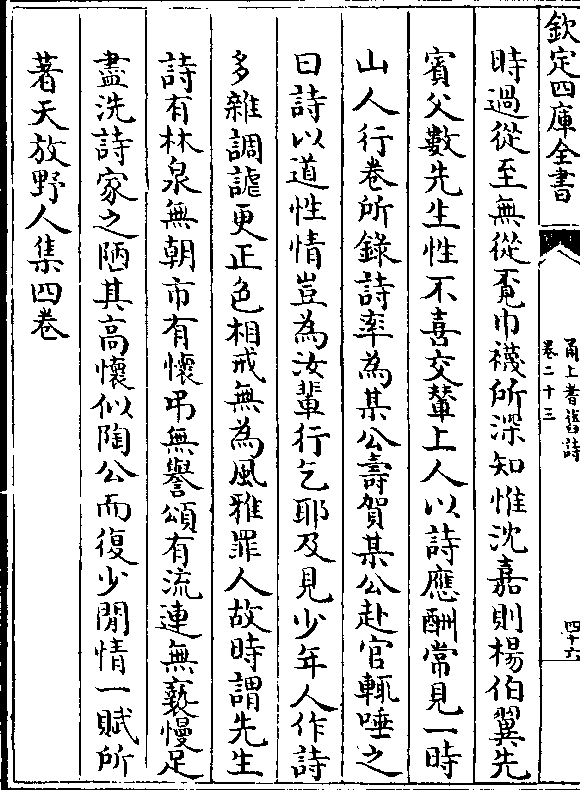 欽定四庫全書
甬上耆舊詩
卷二十三
四十六
時過從至無從覔巾襪所深知惟沈嘉則楊伯翼先
賓父數先生性不喜交輦上人以詩應酬常見一時
山人行卷所錄詩率為某公壽賀某公赴官輒唾之
曰詩以道性情豈為汝輩行乞耶及見少年人作詩
多雜調謔更正色相戒無為風雅罪人故時謂先生
詩有林泉無朝市有懷弔無譽頌有流連無褻慢足
盡洗詩家之陋其高懷似陶公而復少閒情一賦所
著天放野人集四卷